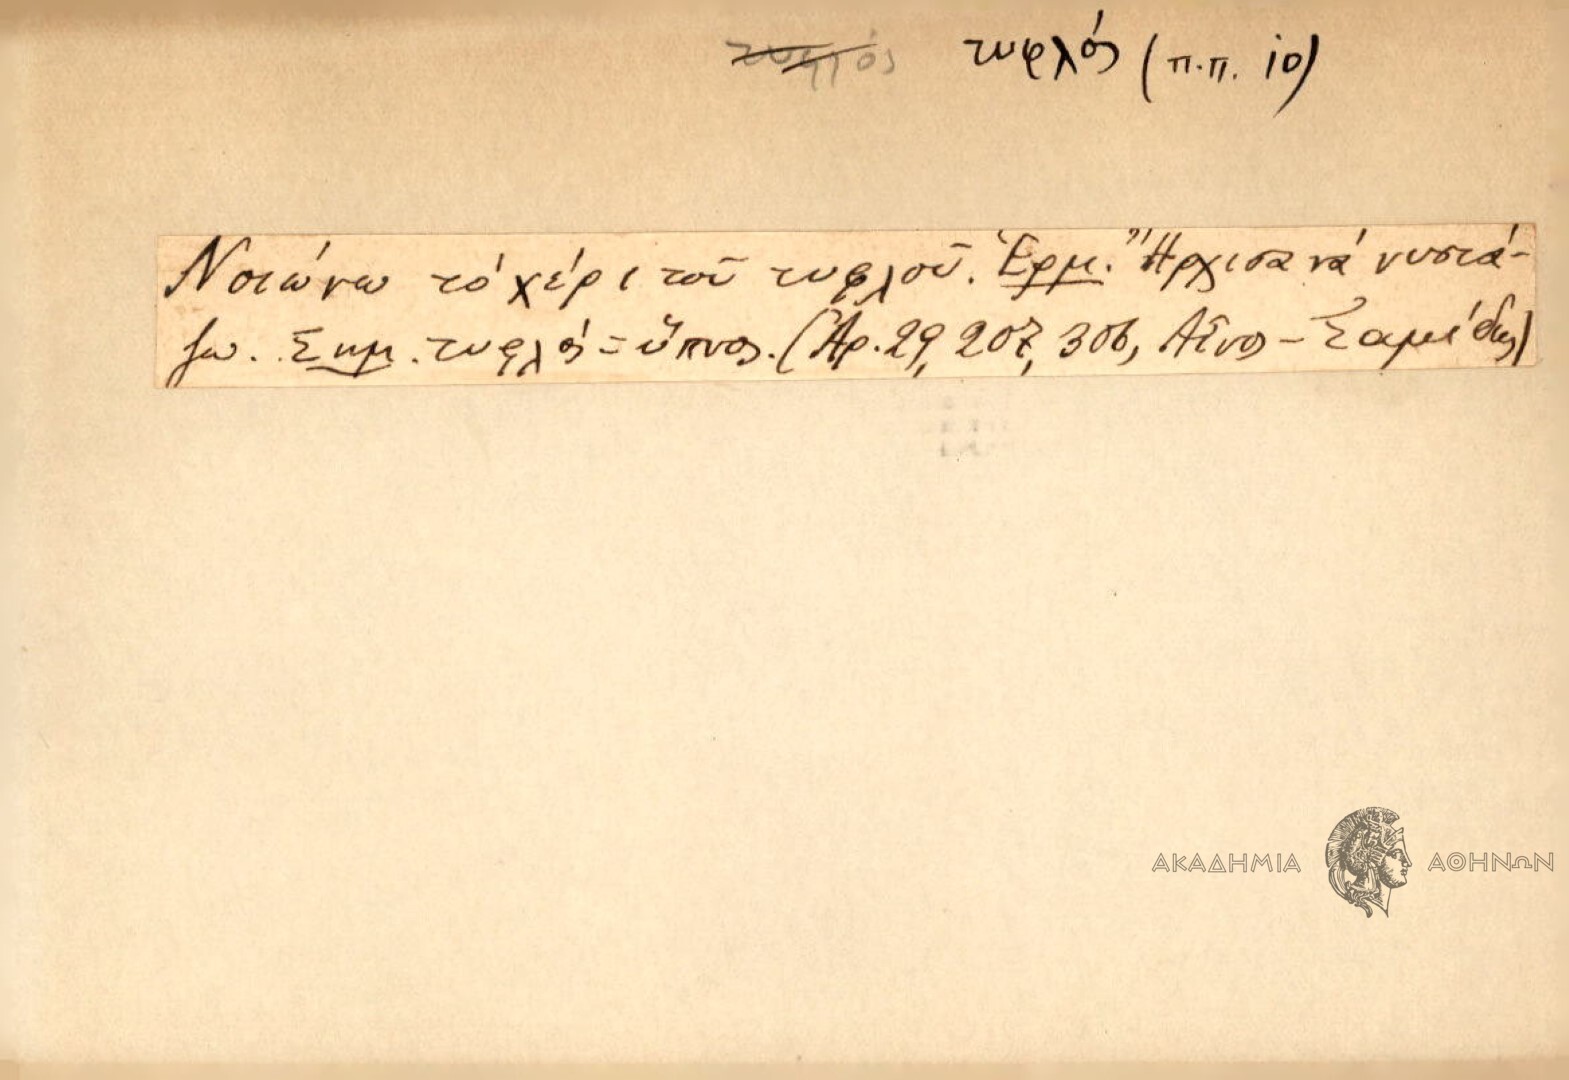 τυφλός τυφλός (π.π. 10)
Νοιώνω τό χέρι τοῦ τυφλοῦ. Ἑρμ. Ἤρχισα νά νυστά-
ζω. Σημ. τυφλός = ὕπνος. (Ἀρ. 29, 207, 306, Αἶνος - Σαμίδης)
ΑΚΑΔΗΜΙΑ ΑΘΗΝΩΝ